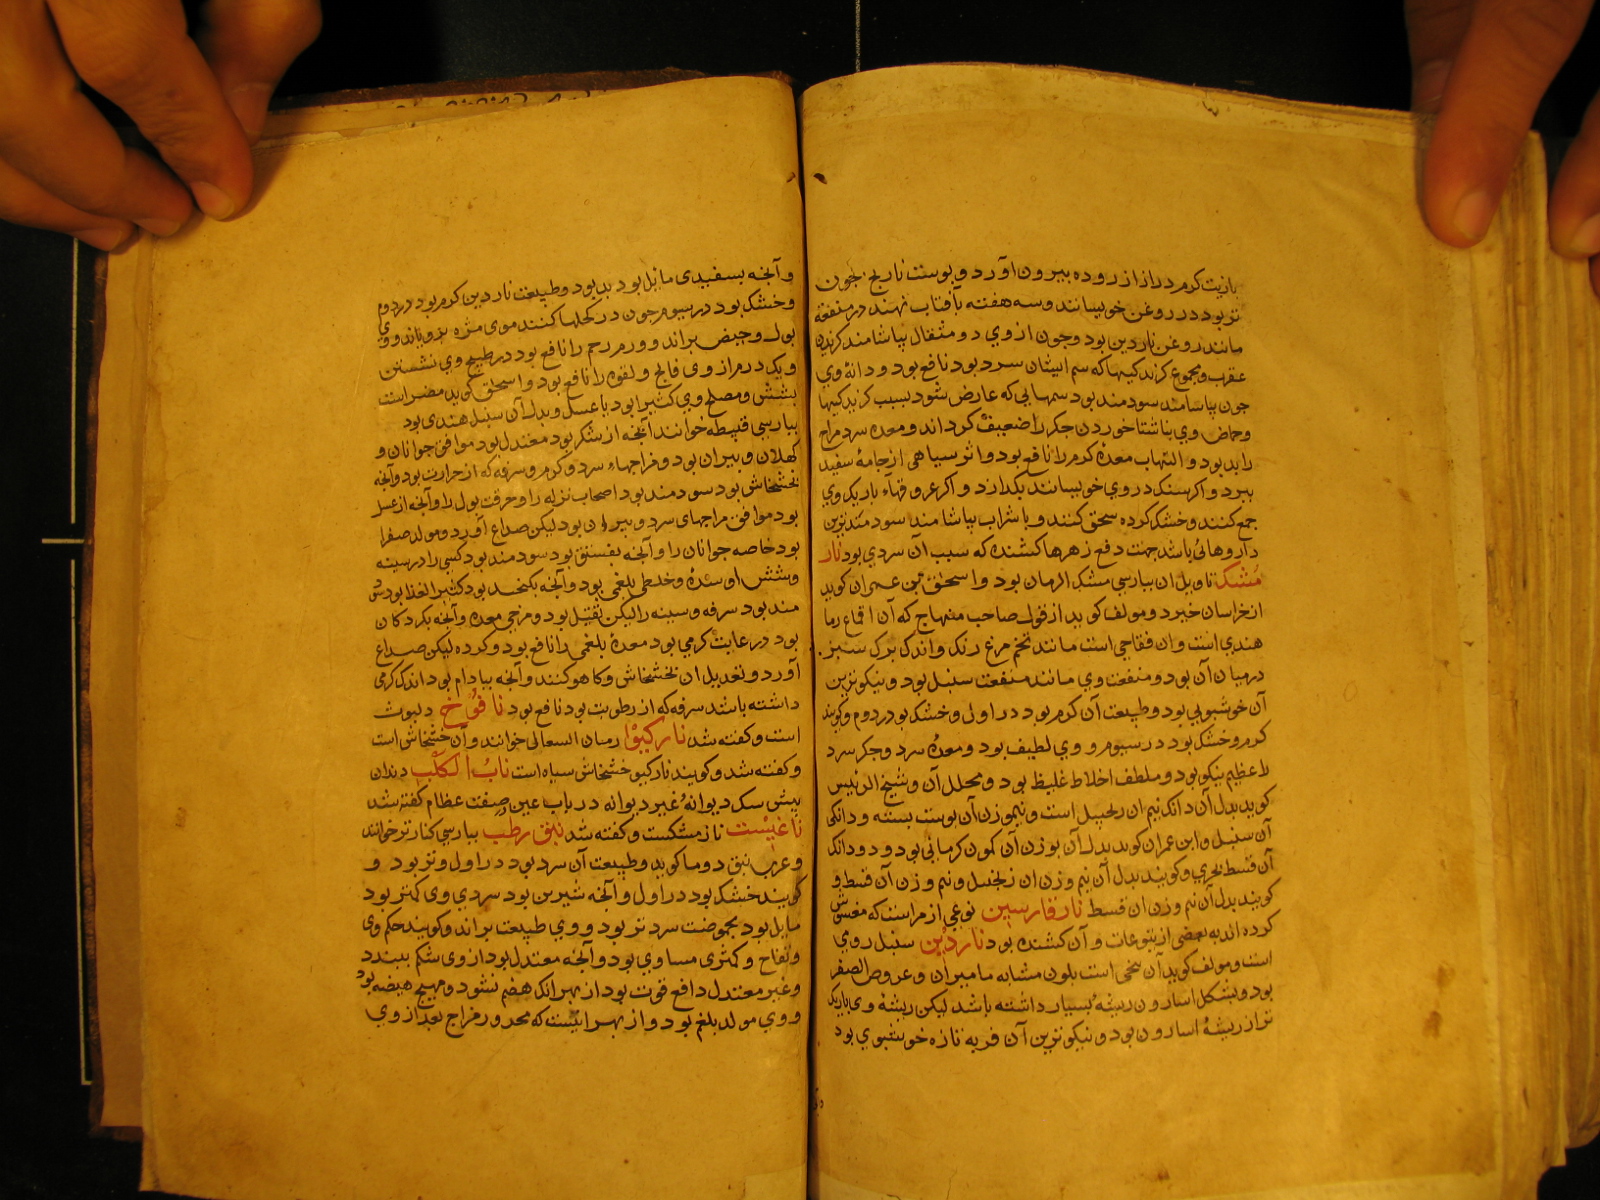 بازیت کرم دراز از روده بیرون آورد و پوست نارنج جون
تر بود در روغن خویسانند و سه هفته بآفتاب نهند در منفعة
مانند روغن ناردین بود و جون از وی دو مثقال بیاشامند کزیدن
عقرب و مجموع کزندکیها که سم ایشان سرد بود نافع بود و دانهٔ وی
جون بیاشامند سودمند بود سمهایی که عارض شود بسبب کزندکیها
و حماض وی بناشتا خوردن جکر را ضعیف کرداند و معده سرد مزاج
را بد بود و التهاب معدهٔ کرم را نافع بود و اثر سیاهی از جامهٔ سفید
ببرد و اکر سنک در وی خویسانند بکدازد و اکر عروقهاء باریک وی
جمع کنند و خشک کرده سحق کنند و با شراب بیاشامند سودمندترین
داروهائی باشد جهت دفع زهرها کشنده که سبب آن سردی بود نار
مشک تاویل ان بپارسی مشک الرمان بود و اسحق بن عمران کوید
از خراسان خیزد و مولف کوید از قول صاحب منهاج که آن اقماع رما
هندی است و ان فقاحی است مانند تخم مرغ رنک و اندک برک سبز
درمیان آن بود و منفعت وی مانند منفعت سنبل بود و نیکوترین
آن خوشبویی بود و طبیعت آن کرم بود در اول و خشک بود در دوم و کویند
کرم و خشک بود در سیوم و وی لطیف بود و معدهٔ سرد و جکر سرد
را عظیم نیکو بود و ملطف اخلاط غلیظ بود و محلل آن و شیخ الرئیس
کوید بدل آن دانک نیم ان زنجبیل است و نیم وزن آن پوست بسته و دانکی
آن سنبل و ابن عمران کوید بدل آن بوزن آن کمون کرمانی بود و دو دانک
آن قسط بحری و کویند بدل آن نیم وزن ان زنجبیل و نیم وزن آن قسط و
کویند بدل آن نیم وزن ان قسط نارفارسین نوعی از مراست که مغشوش
کرده اند به بعضی از یتوعات و آن کشنده بود ناردین سنبل رومی
است و مولف کوید آن بیخی است بلون مشابه مامیران و عروق الصفر
بود و بشکل اسارون ریشهٔ بسیار داشته باشد لیکن ریشهٔ وی باریک
تر از ریشهٔ اسارون بود و نیکوترین آن فربه تازه خوشبوی بود
و آنجه بسفیدی مایل بود بد بود و طبیعت ناردین کرم بود در دوم
و خشک بود در سیوم جون در کحلها کنند موی مژه برویاند و وی
بول و حیض براند و ورم رحم را نافع بود در طبیخ وی نشستن
و یکدرم از وی فالج و لقوه را نافع بود و اسحق کوید مضر است
بشش و مصلح وی کثیرا بود با عسل و بدل آن سنبل هندی بود
بپارسی قبیطه خوانند آنجه از شکر بود معتدل بود موافق جوانان و
کهلان و پیران بود و مزاجهاء سرد و کرم و سرفه که از حرارت بود و آنجه
بخشخاش بود سودمند بود اصحاب نزله را و حرقت بول را و آنجه از عسل
بود موافق مزاجهای سرد و پیران بود لیکن صداع آورد و مولد صفرا
بود خاصه جوانان را و آنجه بفستق بود سودمند بود کسی را در سینه
و شش او سدهٔ و خلطی بلغمی بود و آنجه بکنجد بود کثیر الغذا بود سود
مند بود سرفه و سینه را لیکن ثقیل بود و مرخی معده و آنجه بکردکان
بود در غایت کرمی بود معدهٔ بلغمی را نافع بود و کرده لیکن صداع
آورد و تعدیل ان بخشخاش و کاهو کنند و آنجه ببادام بود اندک کرمی
داشته باشد سرفه که از رطوبت بود نافع بود نافوخ دلبوث
است و کفته شد نارکیوا رمان السعالی خوانند و آن خشخاش است
و کفته شد و کویند نارکیو خشخاش سیاه است ناب الکلب دندان
بیش سک دیوانهٔ غیر دیوانه در باب عین صفت عظام کفته شد
ناغیشت نارمشکست و کفته شد نبق رطب بپارسی کنار تر خوانند
و عربی نبق دوما کوید و طبیعت آن سرد بود در اول و تر بود و
کویند خشک بود در اول و آنجه شیرین بود سردی وی کمتر بود
مایل بود بحموضت سرد تر بود و وی طبیعت براند و کویند حکم وی
و تفاح و کمثری مساوی بود و آنجه معتدل بود از وی شکم ببندد
و غیر معتدل دافع قوت بود از بهر آنک هضم نشود و مهیج هیضه بود
و وی مولد بلغم بود و از بهر اینست که محرور مزاج بعد از وی